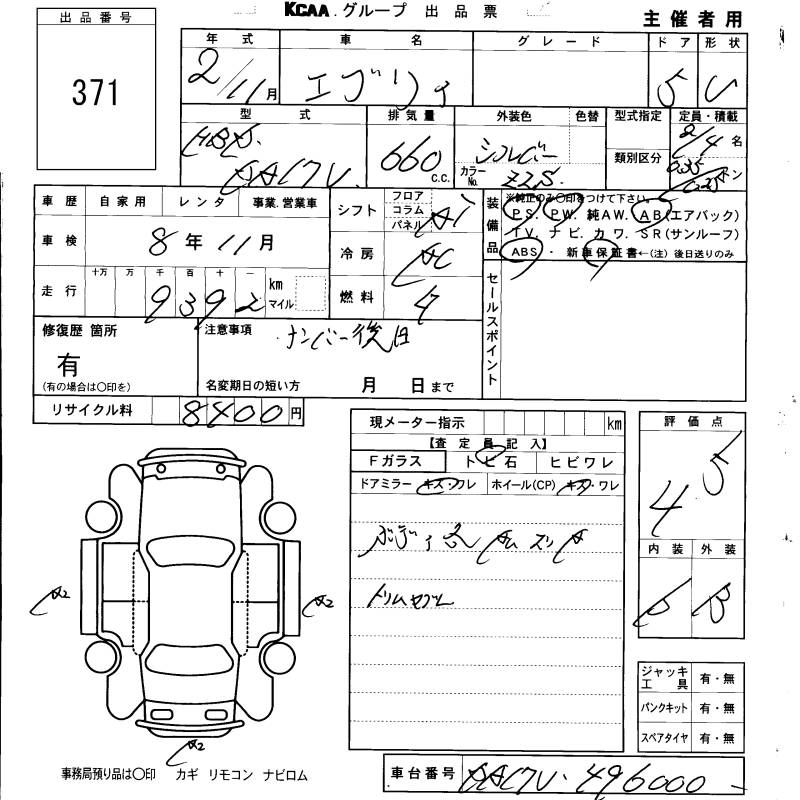 KCAA. グループ 出品票
主催者用
出品番号
371
年式 車名 グレード ドア 形状
2/11月 エブリイ 5 V
型式 排気量 外装色 色替 型式指定 定員・積載
HBD DA17V 660 C.C. シルバー カラーNo. Z2S 類別区分 2/4名 トン
車歴 自家用 レンタ 事業.営業車
車検 8年11月
走行 十万 万 千 百 十 一 km マイル
9392
シフト フロア コラム パネル AT
冷房 AC
燃料
装備品 ※純正のみ〇印をつけて下さい。
PS. PW. 純AW. AB(エアバック)
TV. ナビ. カワ. SR(サンルーフ)
ABS ・ 新車保証書←(注)後日送りのみ
セールスポイント
修復歴 箇所
有
(有の場合は〇印を)
注意事項 ナンバー後日
名変期日の短い方 月 日まで
リサイクル料 8400円
現メーター指示 km
【査定員記入】
Fガラス トビ石 ヒビワレ
ドアミラー キズ・ワレ ホイール(CP) キズ・ワレ
評価点
4.5
内装 外装
B B
A2
A2
A2
ジャッキ工具 有・無
パンクキット 有・無
スペアタイヤ 有・無
事務局預り品は〇印 カギ リモコン ナビロム
車台番号 DA17V-496000